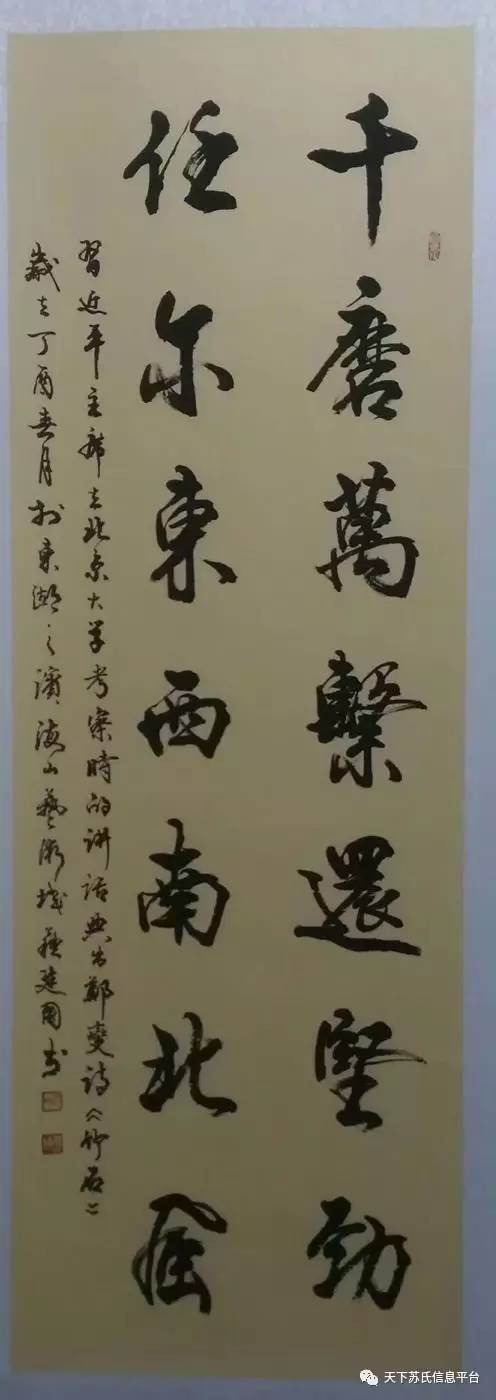 千磨萬繫還堅勁
任尔東西南北風
習近平主席在北京大学考察時的讲话典出鄭燮诗《竹石》
歲在丁酉春月於東湖之濱海山藝術城蘇建国书
天下苏氏信息平台